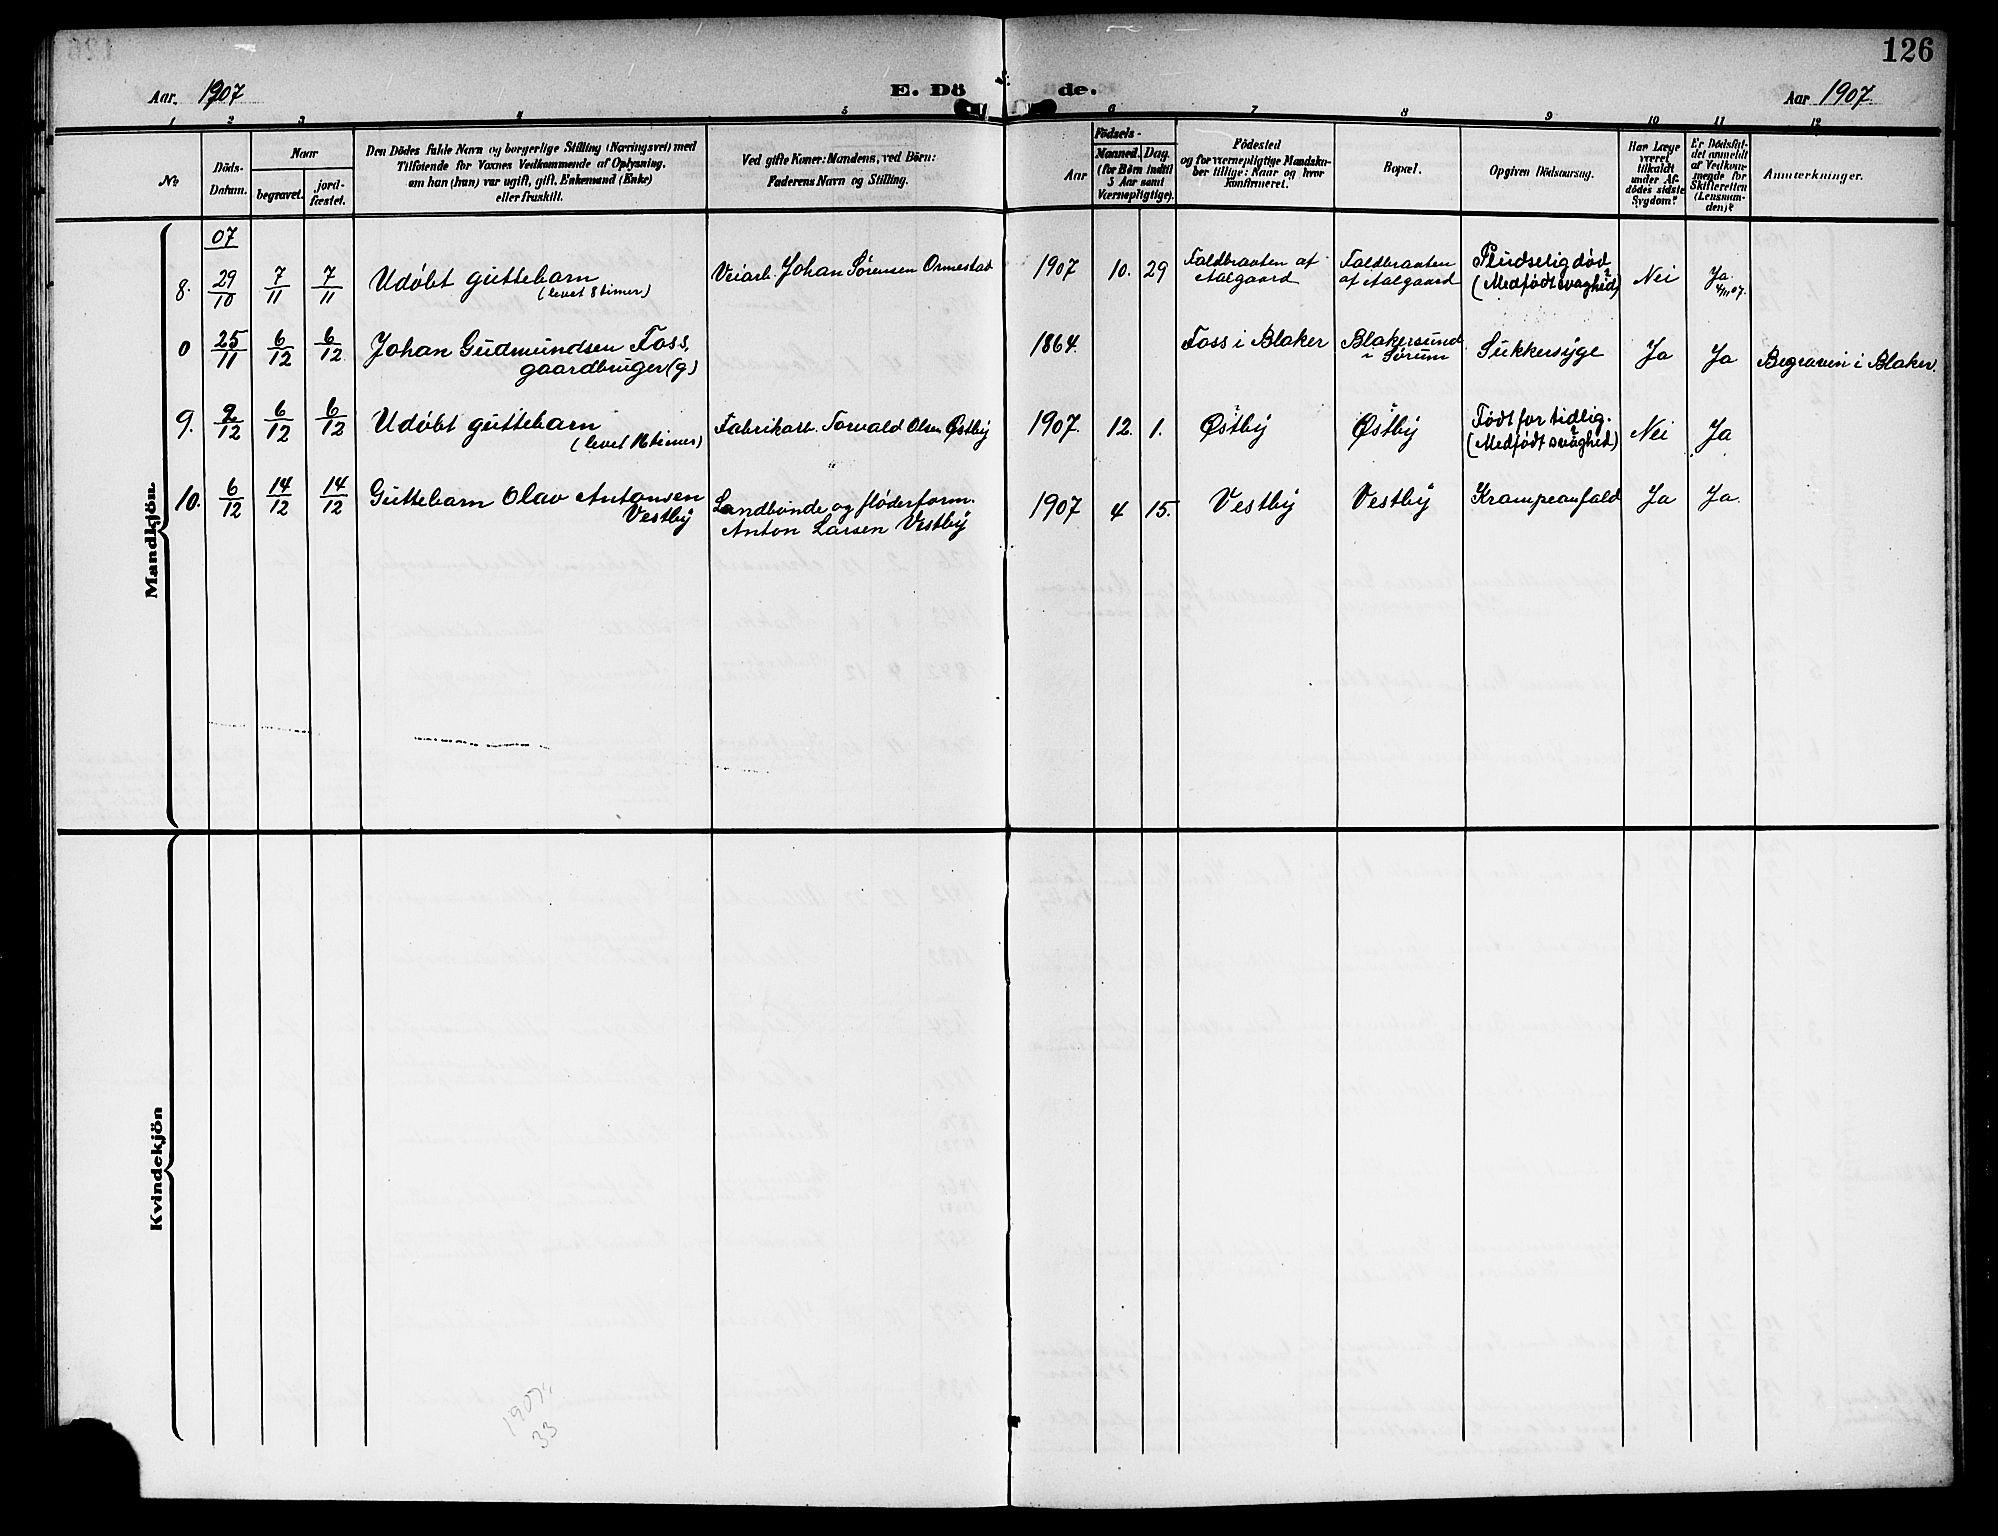 126
Aar. 1907
E. Dö de.
Aar 1907.
1 2 3 4 5 6 7 8 9 10 11 12
No
Döds-Datum.
Naar
begravet.
jord-fæstet.
Den Dödes fulde Navn og borgerlige Stilling (Næringsvei) med
Tilföiende for Voxnes Vedkommende af Oplysning,
om han (hun) var ugift, gift, Enkemand (Enke)
eller fraskilt.
Ved gifte Koner: Mandens, ved Börn:
Faderens Navn og Stilling.
Födsels-
Aar
Maaned. Dag.
(for Börn indtil
5 Aar samt
Værnepligtige).
Födested
og for værnepligtige Mandska-
ber tillige: Naar og hvor
konfirmeret.
Bopæl.
Opgiven Dödsaarsag.
Har Læge
været
tilkaldt
under Af-
dödes sidste
Sygdom?
Er Dödsfal-
det anmeldt
af Vedkom-
mende for
Skifteretten
(Lensman-
den)?
Anmærkninger.
Mandkjön.
07
8. 29/10 7/11 7/11 Udøbt guttebarn
(levet 8 timer)
Veiarb. Johan Sørensen Ormestad
1907 10. 29
Faldbraaten af
Aalgaard
Faldbraaten
af Aalgaard
Pludselig død
(Medfødt svaghed)
Nei
Ja
4/11 07.
0 25/11 6/12 6/12 Johan Gudmundsen Foss,
gaardbruger (g)
1864. Foss i Blaker
Blakersund
i Sørum
Sukkersyge Ja Ja Begraven i Blaker.
9. 2/12 6/12 6/12 Udøbt guttebarn
(levet 16 timer)
Fabrikarb. Torvald Olsen Østby
1907. 12. 1. Østby Østby
Født for tidlig.
(Medfødt svaghed)
Nei Ja
10. 6/12 14/12 14/12 Guttebarn Olav Antonsen
Vestby
Landbonde og fløderform.
Anton Larsen Vestby
1907 4 15. Vestby Vestby Krampeanfald Ja Ja.
Kvindekjön
1907
33